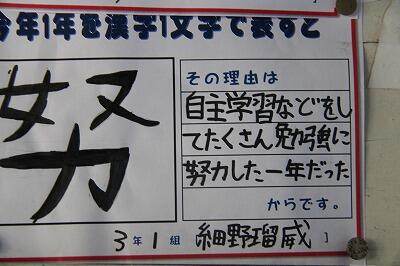 今年1年を漢字1文字で表すと
努
その理由は
自主学習などをし
てたくさん勉強に
努力した一年だった
からです。
3年1組 細野瑠威